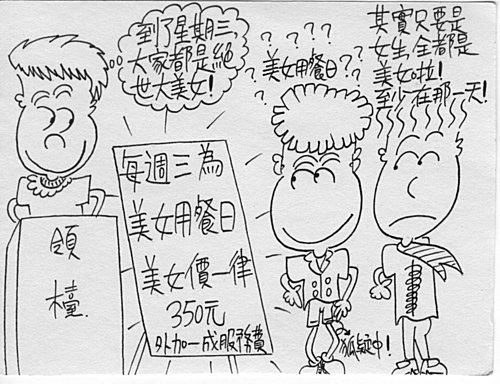 到了星期三
大家都是絕
世大美女!
? ? ? ?
? 美女用餐日 ? ?
? ? ? ?
其實只要是
女生全都是
美女啦!
至少在那一天!
每週三為
美女用餐日
美女價一律
350元
外加一成服務費
領
檯
狐疑中!